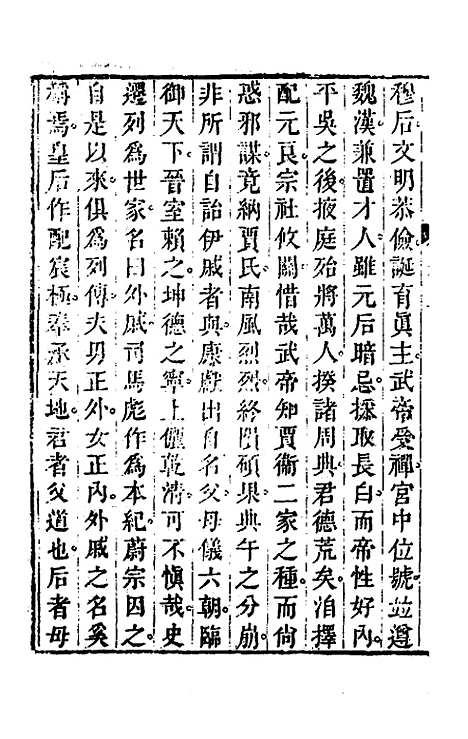 穆后文明恭儉誕育眞主武帝受禪宮中位號並遵
魏漢兼置才人雖元后暗忌採取長白而帝性好內
平吳之後掖庭殆將萬人揆諸周典君德荒矣洎擇
配元良宗社攸關惜哉武帝知賈衞二家之種而尙
惑邪謀竟納賈氏南風烈烈終隕碩果典午之分崩
非所謂自詒伊戚者與康獻出自名父母儀六朝臨
御天下晉室賴之坤德之寧上儷乾淸可不愼哉史
遷列爲世家名曰外戚司馬彪作爲本紀蔚宗因之
自是以來俱爲列傳夫男正外女正內外戚之名奚
稱焉皇后作配宸極奉承天地君者父道也后者母